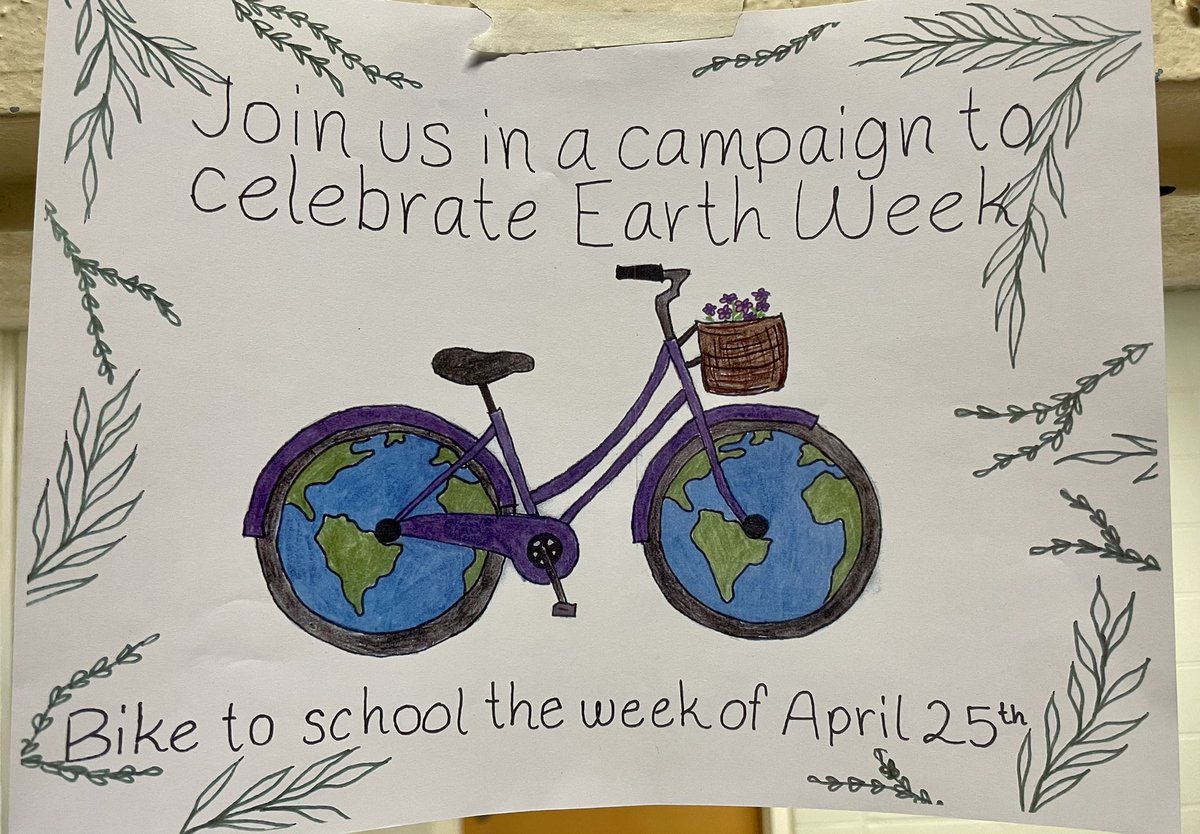 Join us in a campaign to
celebrate Earth Week
Bike to school the week of April 25th